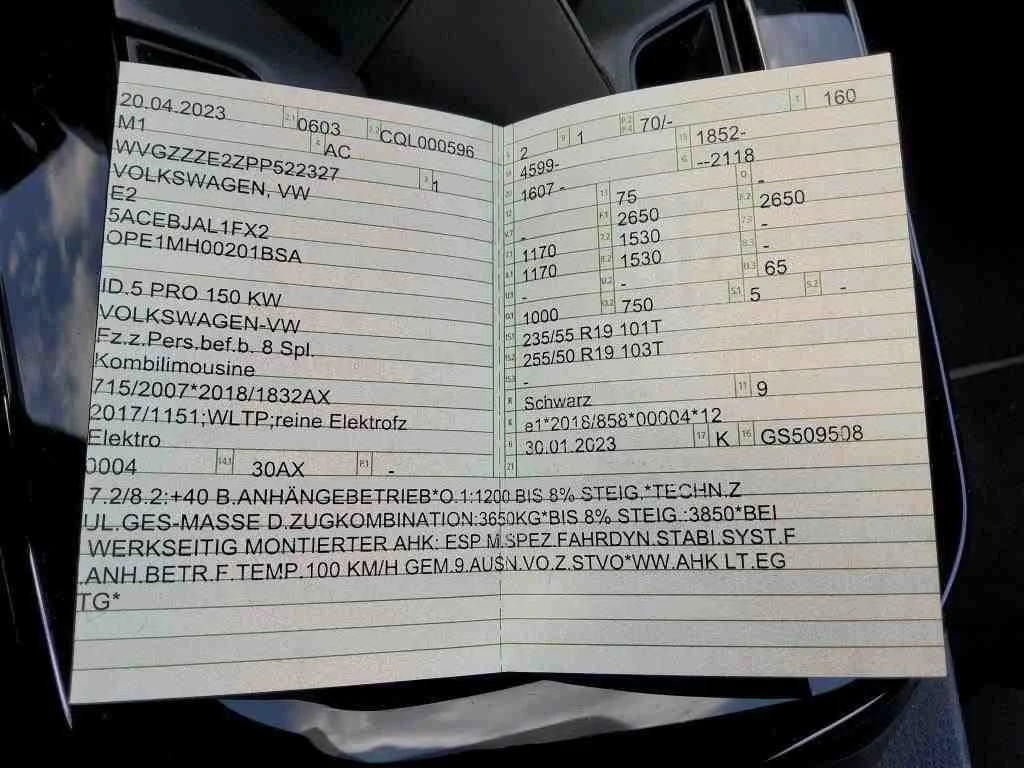 20.04.2023 2.1 0603 2.2 CQL000596
M1 4 AC
WVGZZZE2ZPP522327 3 1
VOLKSWAGEN, VW
E2
5ACEBJAL1FX2
OPE1MH00201BSA
ID.5 PRO 150 KW
VOLKSWAGEN-VW
Fz.z.Pers.bef.b. 8 Spl.
Kombilimousine
715/2007*2018/1832AX
2017/1151;WLTP;reine Elektrofz
Elektro
0004 14.1 30AX P.1 -
L 2 9 1 P.2 P.4 70/- T 160
18 4599- 19 1852-
20 1607- G --2118
12 - 13 75 Q -
V.7 - F.1 2650 F.2 2650
7.1 1170 7.2 1530 7.3 -
8.1 1170 8.2 1530 8.3 -
U.1 - U.2 - U.3 65
O.1 1000 O.2 750 S.1 5 S.2 -
15.1 235/55 R19 101T
15.2 255/50 R19 103T
15.3 -
R Schwarz 11 9
K e1*2018/858*00004*12
6 30.01.2023 17 K 16 GS509508
21
7.2/8.2:+40 B.ANHÄNGEBETRIEB*O.1:1200 BIS 8% STEIG.*TECHN.Z
UL.GES-MASSE D.ZUGKOMBINATION:3650KG*BIS 8% STEIG.:3850*BEI
WERKSEITIG MONTIERTER AHK: ESP M.SPEZ.FAHRDYN.STABI.SYST.F
.ANH.BETR.F.TEMP.100 KM/H GEM.9.AUSN.VO.Z.STVO*WW.AHK LT.EG
TG*